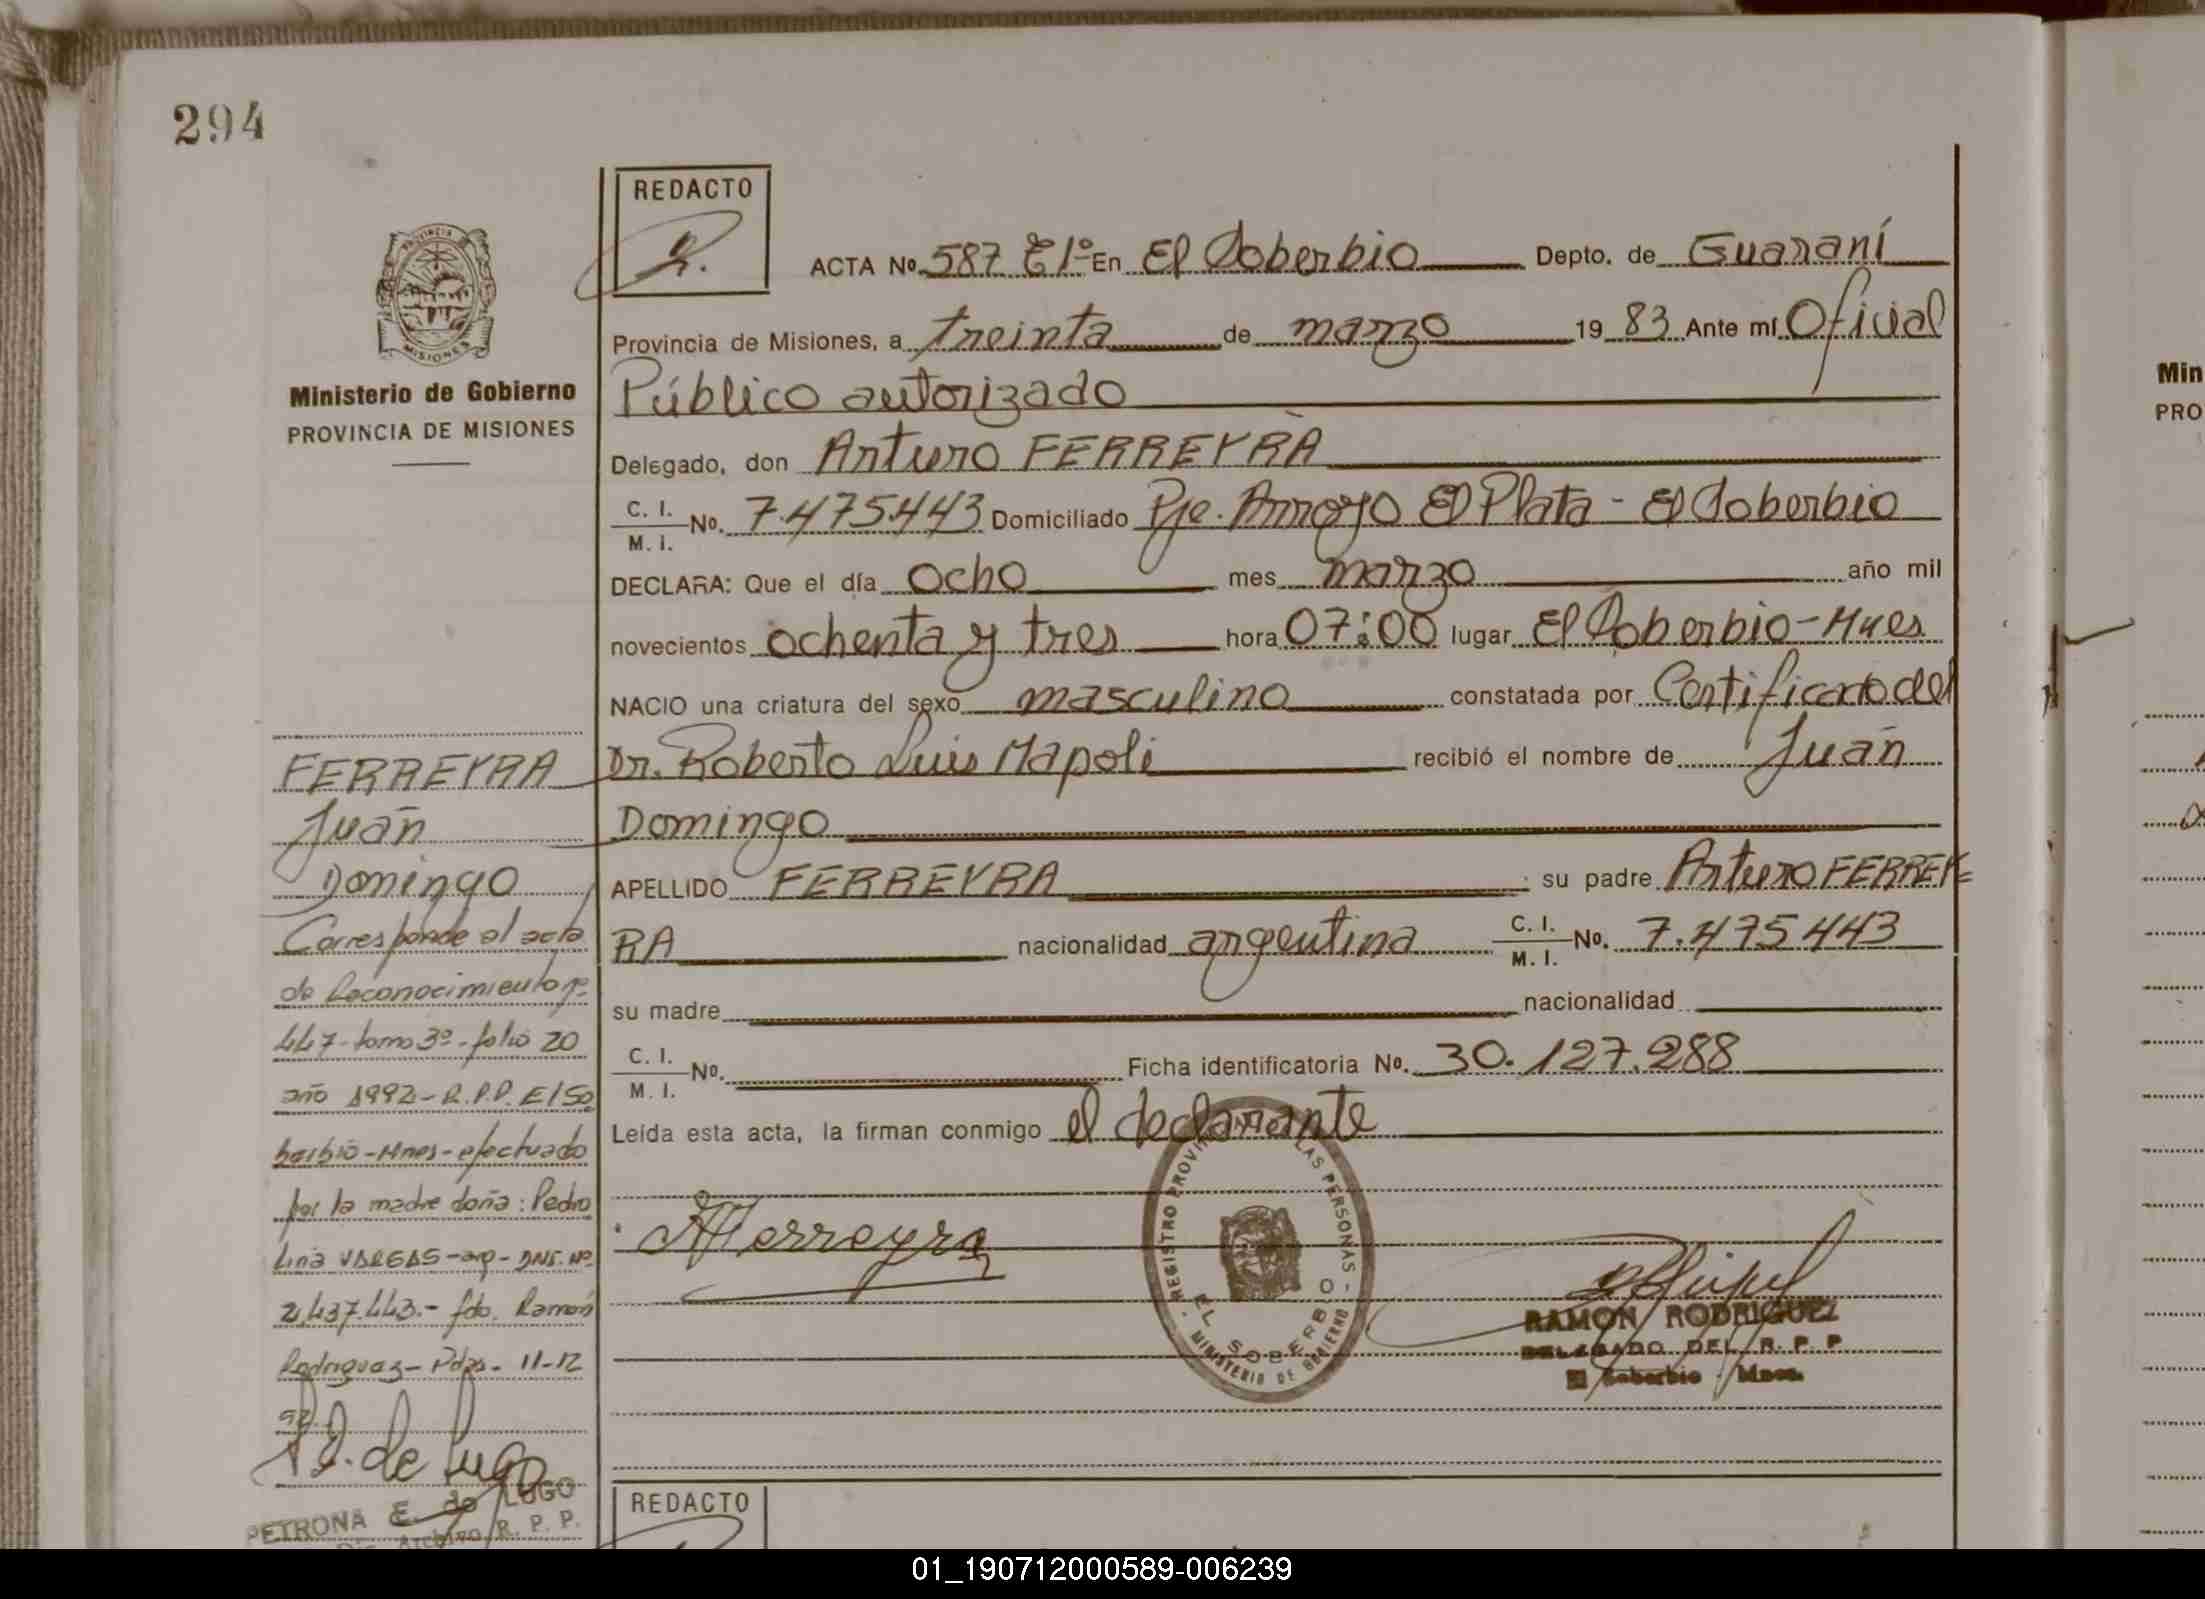 294
REDACTO
PROVINCIA
MISIONES
Ministerio de Gobierno
PROVINCIA DE MISIONES
ACTA No. 587 E 1º En El Soberbio Depto. de Guaraní
Provincia de Misiones, a treinta de marzo 19 83 Ante mí Oficial
Público autorizado
Delegado, don Arturo FERREYRA
C. I. M. I. No. 7.475.443 Domiciliado Pje. Arroyo El Plata - El Soberbio
DECLARA: Que el día ocho mes marzo año mil
novecientos ochenta y tres hora 07:00 lugar El Soberbio - Mnes
NACIO una criatura del sexo masculino constatada por Certificado del
Dr. Roberto Luis Napoli recibió el nombre de Juan
Domingo
APELLIDO FERREYRA su padre Arturo FERREY=
RA nacionalidad argentina C. I. M. I. No. 7.475.443
su madre nacionalidad
C. I. M. I. No. Ficha identificatoria No. 30.127.288
Leída esta acta, la firman conmigo el declarante
AFerreyra
REGISTRO PROVIN LAS PERSONAS
EL SOBERBIO
MINISTERIO DE GOBIERNO
RAMON RODRIGUEZ
DELEGADO DEL R. P. P
El Soberbio - Mnes.
FERREYRA
Juan
Domingo
Corresponde al acta
de Reconocimiento nº
447 - tomo 3º - folio 20
año 1992 - R.P.P. El So
berbio - Mnes - efectuado
por la madre doña: Pedro
lina VARGAS - arg - DNI. Nº
fdo. Ramón
Rodriguez - Pdas - 11-12
92.
P. E. de Lugo
PETRONA E. de LUGO
Archivo R. P. P.
REDACTO
Min
PRO
01_190712000589-006239